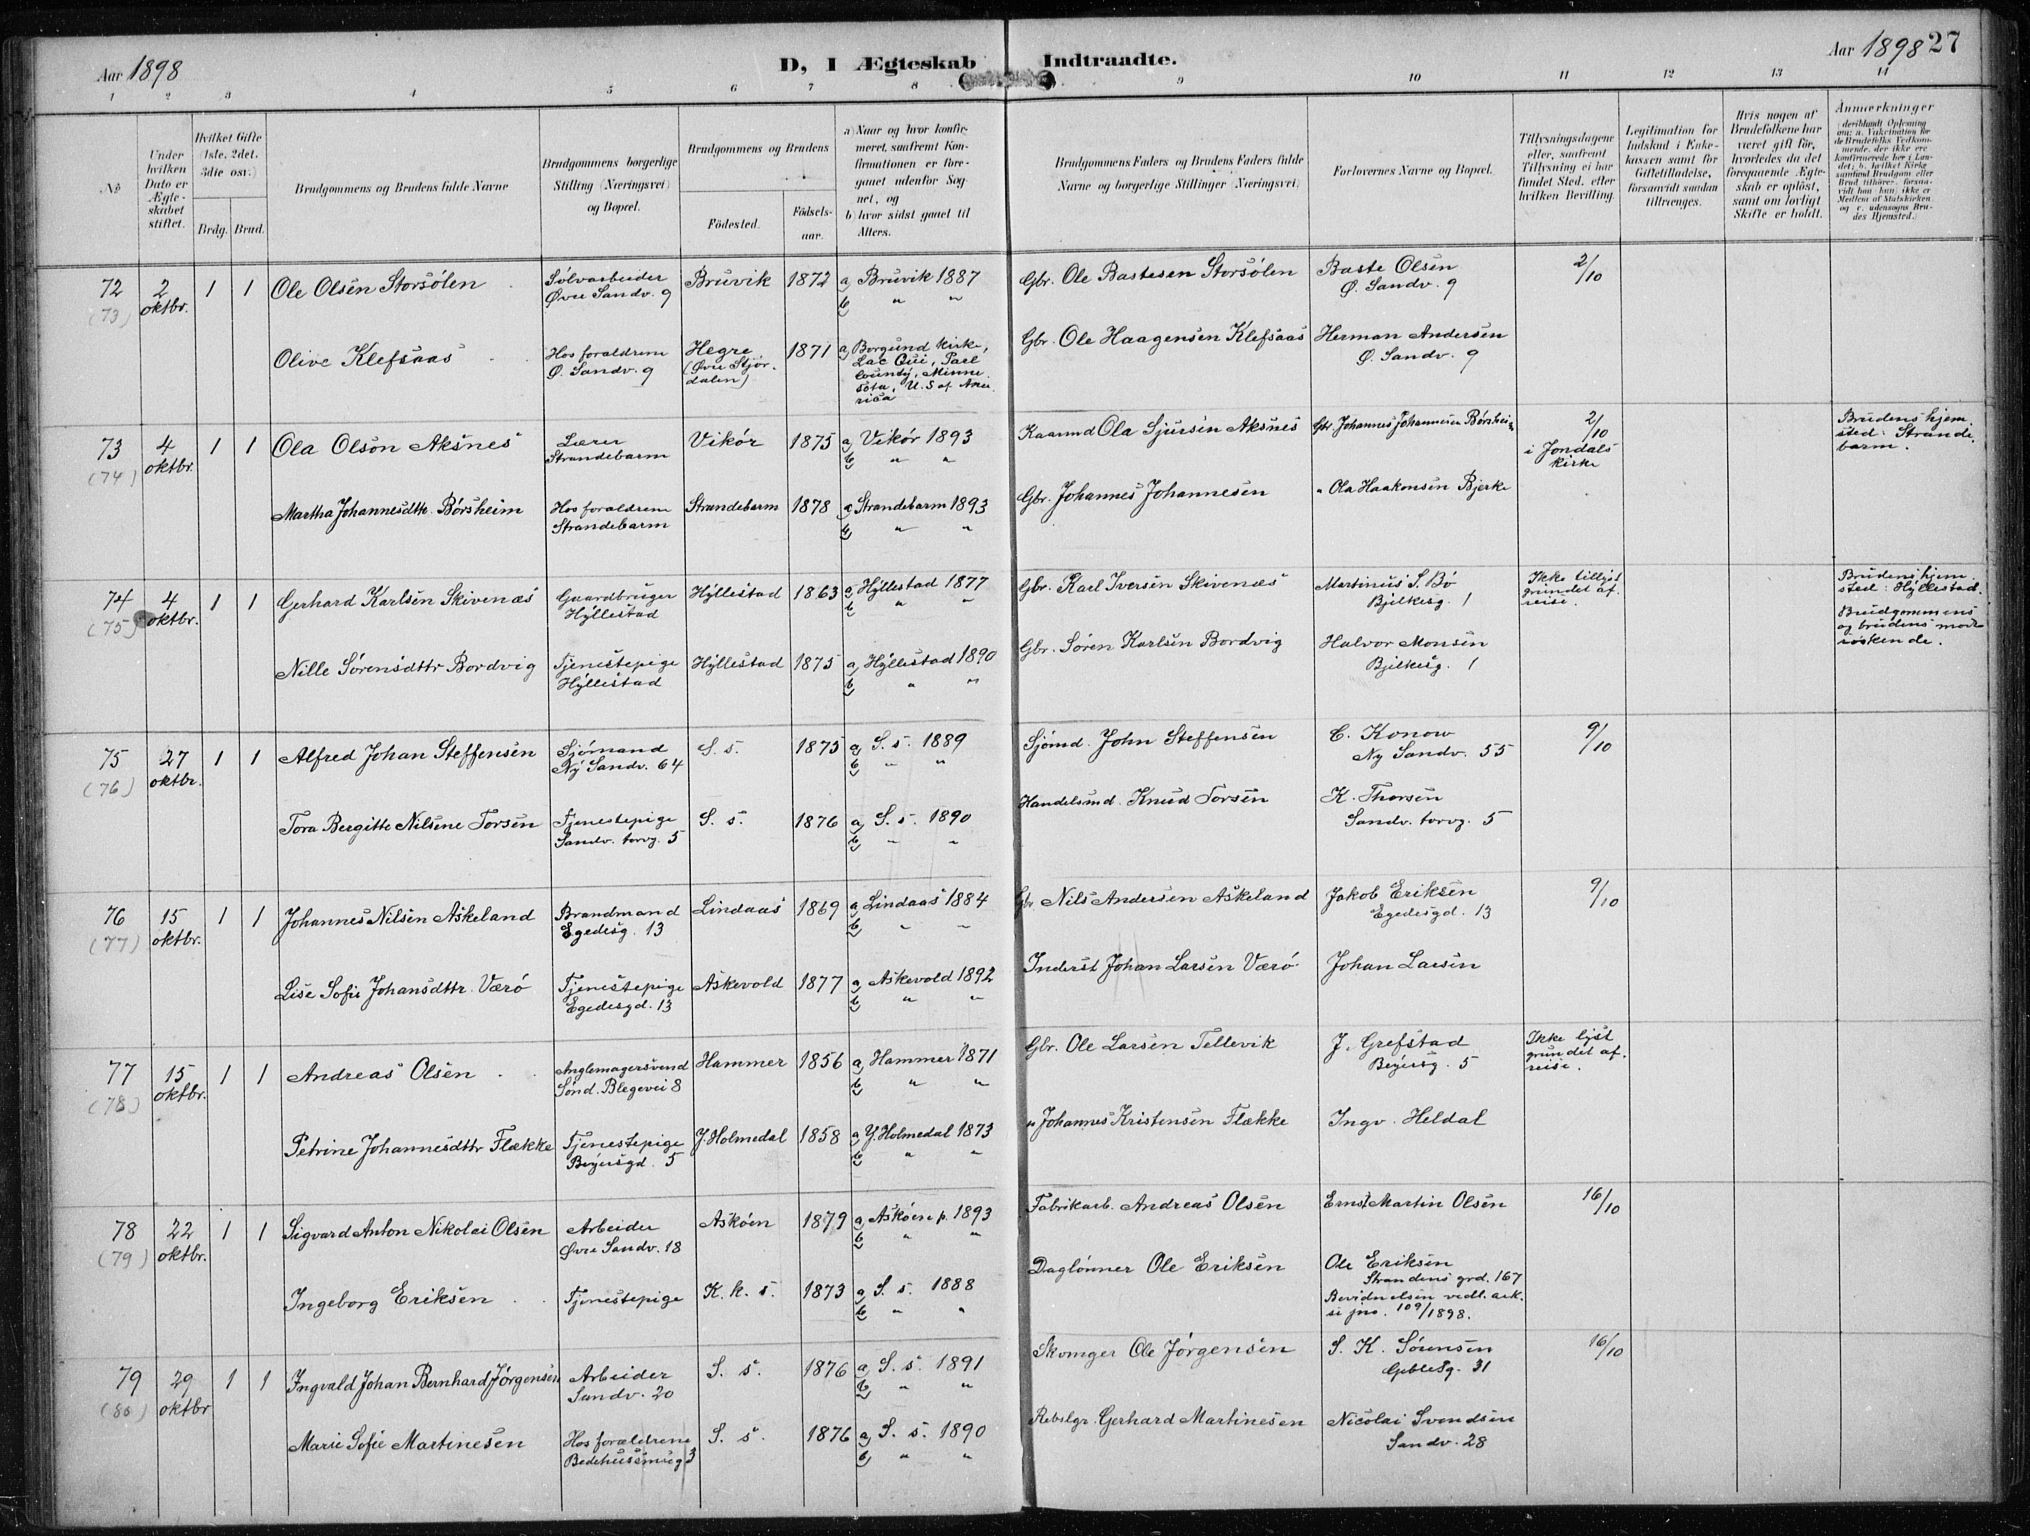 Aar 1898
D, I Ægteskab Indtraadte.
Aar 1898 27
1 2 3 4 5 6 7 8 9 10 11 12 13 14
No
Under hvilken Dato er Ægteskabet stiftet.
Hvilket Gifte (1ste, 2det, 3die osv.)
Brdg. Brud.
Brudgommens og Brudens fulde Navne
Brudgommens borgerlige Stilling (Næringsvei) og Bopæl.
Brudgommens og Brudens
Fødested. Fødsels-aar.
a) Naar og hvor konfirmeret, saafremt Konfirmationen er foregaaet udenfor Sognet, og
b) hvor sidst gaaet til Alters.
Brudgommens Faders og Brudens Faders fulde Navne og borgerlige Stillinger (Næringsvei)
Forlovernes Navne og Bopæl.
Tillysningsdagene eller, saafremt Tillysning ei har fundet Sted, efter hvilken Bevilling.
Legitimation for Indskud i Enkekassen samt for Giftetilladelse, forsaavidt saadan tiltrænges.
Hvis nogen af Brudefolkene har været gift før, hvorledes da det foregaaende Ægteskab er opløst, samt om lovligt Skifte er holdt.
Anmerkninger
72 2 1 1 Ole Olsen Storsølen Sølvarbeider Bruvik 1872 a) Bruvik 1887 Gbr. Ole Bastesen Storsølen Baste Olsen 2/10
(73) oktbr. Øvre Sandv. 9 b) " " Ø. Sandv. 9
Olive Klefsaas Hos forældrene Hegre 1871 a) Borgund kirke, Gbr. Ole Haagensen Klefsaas Herman Andersen
Ø. Sandv. 9 (Øvre Stjør- Lac Qui, Parl Ø. Sandv. 9
dalen) County, Minne
sota, U.S. of Ame
rica
73 4 1 1 Ola Olsøn Aksnes Lærer Vikør 1875 a) Vikør 1893 Kaarmd Ola Sjursen Aksnes Gbr. Johannes Johannesen Børsheim 2/10 Brudens hjem
(74) oktbr. Strandebarm b) " " i Jondals sted: Strande
kirke barm.
Martha Johannesdtr. Børsheim Hos forældrene Strandebarm 1878 a) Strandebarm 1893 Gbr. Johannes Johannesen " Ola Haakonsen Bjerke
Strandebarm b) " "
74 4 1 1 Gerhard Karlsen Skivenæs Gaardbruger Hyllestad 1863 a) Hyllestad 1877 Gbr. Karl Iversen Skivenæs Martinus S. Bø Ikke tillyst Brudens hjem
(75) oktbr. Hyllestad b) " " Bjelkesg. 1 grundet af sted: Hyllestad.
reise. Brudgommens
og brudens mødre
søskende.
Nille Sørensdttr Bordvig Tjenestepige Hyllestad 1875 a) Hyllestad 1890 Gbr. Søren Karlsen Bordvig Halvor Monsen
Hyllestad b) " " Bjelkesg. 1
75 27 1 1 Alfred Johan Steffensen Sjømand S. s. 1875 a) S. s. 1889 Sjømd. John Steffensen C. Konow 9/10
(76) oktbr. Ny Sandv. 64 b) " " Ny Sandv. 55
Tora Bergitte Nilsene Torsen Tjenestepige S. s. 1876 a) S. s. 1890 Handelsmd. Knud Torsen K. Thorsen
Sandv. torvg. 5 b) " " Sandv. torvg. 5
76 15 1 1 Johannes Nilsen Askeland Brandmand Lindaas 1869 a) Lindaas 1884 Gbr. Nils Andersen Askeland Jakob Eriksen 9/10
(77) oktbr. Egedesg. 13 b) " " Egedesgd. 13
Lise Sofie Johansdttr. Værø Tjenestepige Askevold 1877 a) Askevold 1892 Inderst Johan Larsen Værø Johan Larsen
Egedesgd. 13 b) " "
77 15 1 1 Andreas Olsen Anglemagersvend Hammer 1856 a) Hammer 1871 Gbr. Ole Larsen Tellevik J. Grefstad Ikke lyst
(78) oktbr. Sønd. Blegevei 8 b) " " Beyersg. 5 grundet af
reise.
Petrine Johannesdttr Flække Tjenestepige Y. Holmedal 1858 a) Y. Holmedal 1873 " Johannes Kristensen Flække Ingv. Heldal
Beyersgd. 5 b) " "
78 22 1 1 Sigvard Anton Nikolai Olsen Arbeider Askøen 1879 a) Askøen p. 1893 Fabrikarb. Andreas Olsen Ernst Martin Olsen 16/10
(79) oktbr. Øvre Sandv. 18 b) " "
Ingeborg Eriksen Tjenestepige K. k. s. 1873 a) S. s. 1888 Daglønner Ole Eriksen Ole Eriksen
b) " " Strandens grd. 167
Bevidnelsen vedl. ark.
se jno. 109/1898.
79 29 1 1 Ingvald Johan Bernhard Jørgensen Arbeider S. s. 1876 a) S. s. 1891 Skomger Ole Jørgensen S. K. Sørensen 16/10
(80) oktbr Sandv. 20 b) " " Geblesg. 31
Marie Sofie Martinesen Hos forældrene S. s. 1876 a) S. s. 1890 Rebslgr. Gerhard Martinesen Nicolai Svendsen
Bedehussmug 3 b) " " Sandv. 28